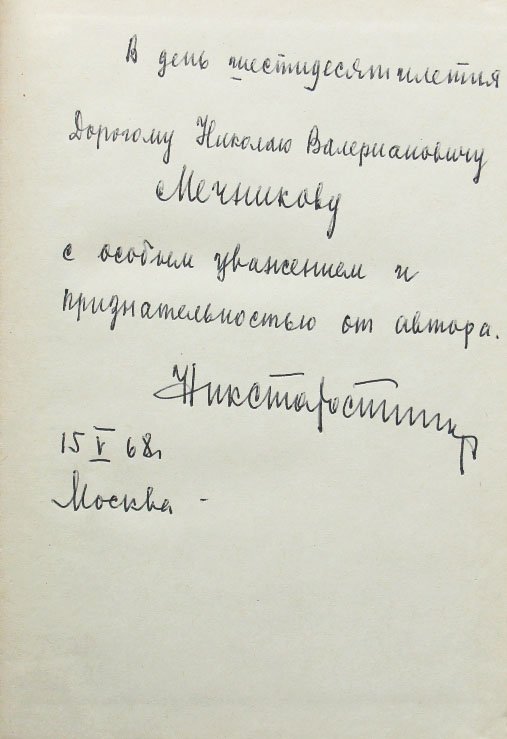 В день шестидесятилетия
Дорогому Николаю Валериановичу
Мечникову
с особым уважением и
признательностью от автора.
Никстаростин
15 V 68г
Москва -